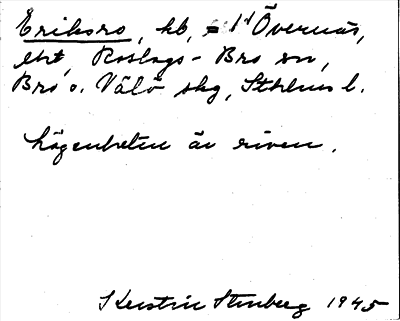 Eriksro, hb, 1/4 Övernäs,
ekt, Roslags-Bro sn,
Bro o. Vätö skg, Sthlms l.
Lägenheten är riven.
Kerstin Stenberg 1945